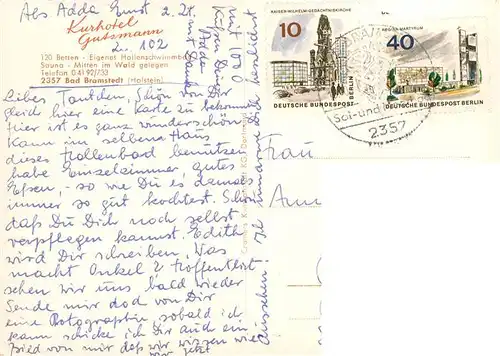 Abs. Adda Ernst z. Zt.
Kurhotel
Gutsmann
Zi. 102
120 Betten - Eigenes Hallenschwimmbad
Sauna - Mitten im Wald gelegen
Telefon 04192/733
2357 Bad Bramstedt (Holstein)
Liebes Tantchen, Schön von Dir
gleich hier eine Karte zu bekommen
hier ist es ganz wunderschön
Kann im selben Haus
dieses Hallenbad benutzen
habe Einzelzimmer, gutes
Essen, - so wie Du es damals
immer so gut kochtest. Schön
daß Du Dich noch selbst
verpflegen kannst. Edith
wird Dir schreiben, Was
macht Onkel? Hoffentlich
sehen wir uns bald wieder
Sende mir doch von Dir
eine Photographie, sobald ich
kann schicke ich Dir auch ein
Bild von mir daß wir wissen wie
wir jetzt
aussehen!
und 1000
Küssen Deine
Adda
KAISER-WILHELM-GEDÄCHTNISKIRCHE
10
DEUTSCHE BUNDESPOST BERLIN
REGINA MARTYRUM
40
DEUTSCHE BUNDESPOST BERLIN
Sol- und
2357
Frau
Ann